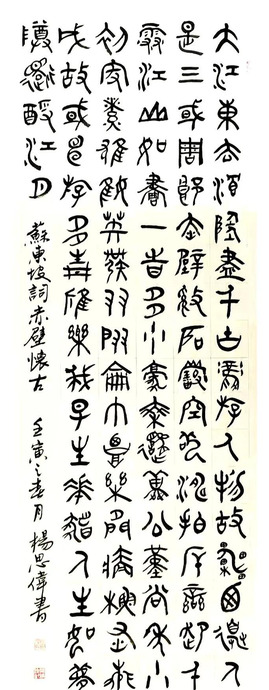 大江東去浪淘盡千古風流人物故壘西邊人
道是三國周郎赤壁亂石穿空驚濤拍岸捲起千
雪江山如畫一時多少豪桀遙想公瑾當年小
初嫁了雄姿英發羽扇綸巾談笑間檣櫓灰飛
滅故國神遊多情應笑我早生華髮人生如夢
尊還酹江月
蘇東坡詞赤壁懷古 壬寅之春月 楊思偉書